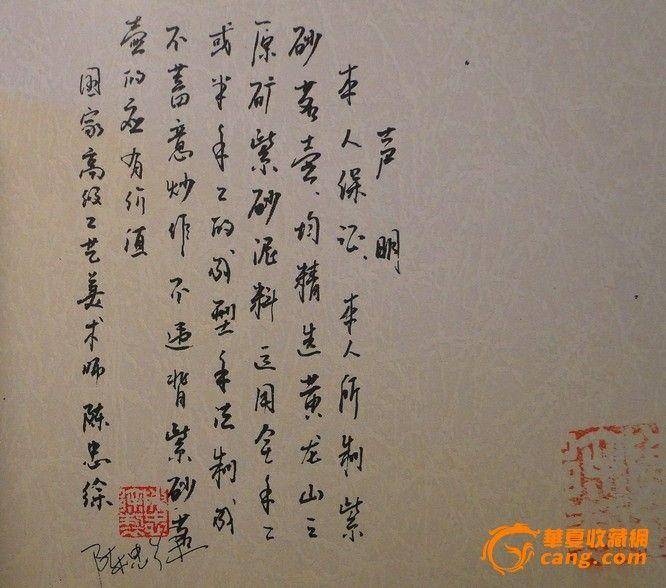 声明
本人保证、本人所制紫
砂茗壶、均精选黄龙山之
原矿紫砂泥料运用全手工
或半手工的成型手法制成
不蓄意炒作不违背紫砂茗
壶的应有价值
国家高级工艺美术师陈忠徐
華夏收藏網
cang.com